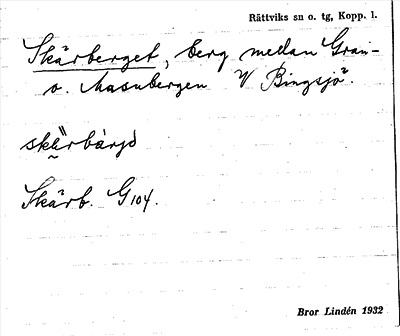 Rättviks sn o. tg, Kopp. l.
Skärberget, berg mellan Gran-
o. Masubergen V Bingsjö.
Skärb. G 104.
Bror Lindén 1932